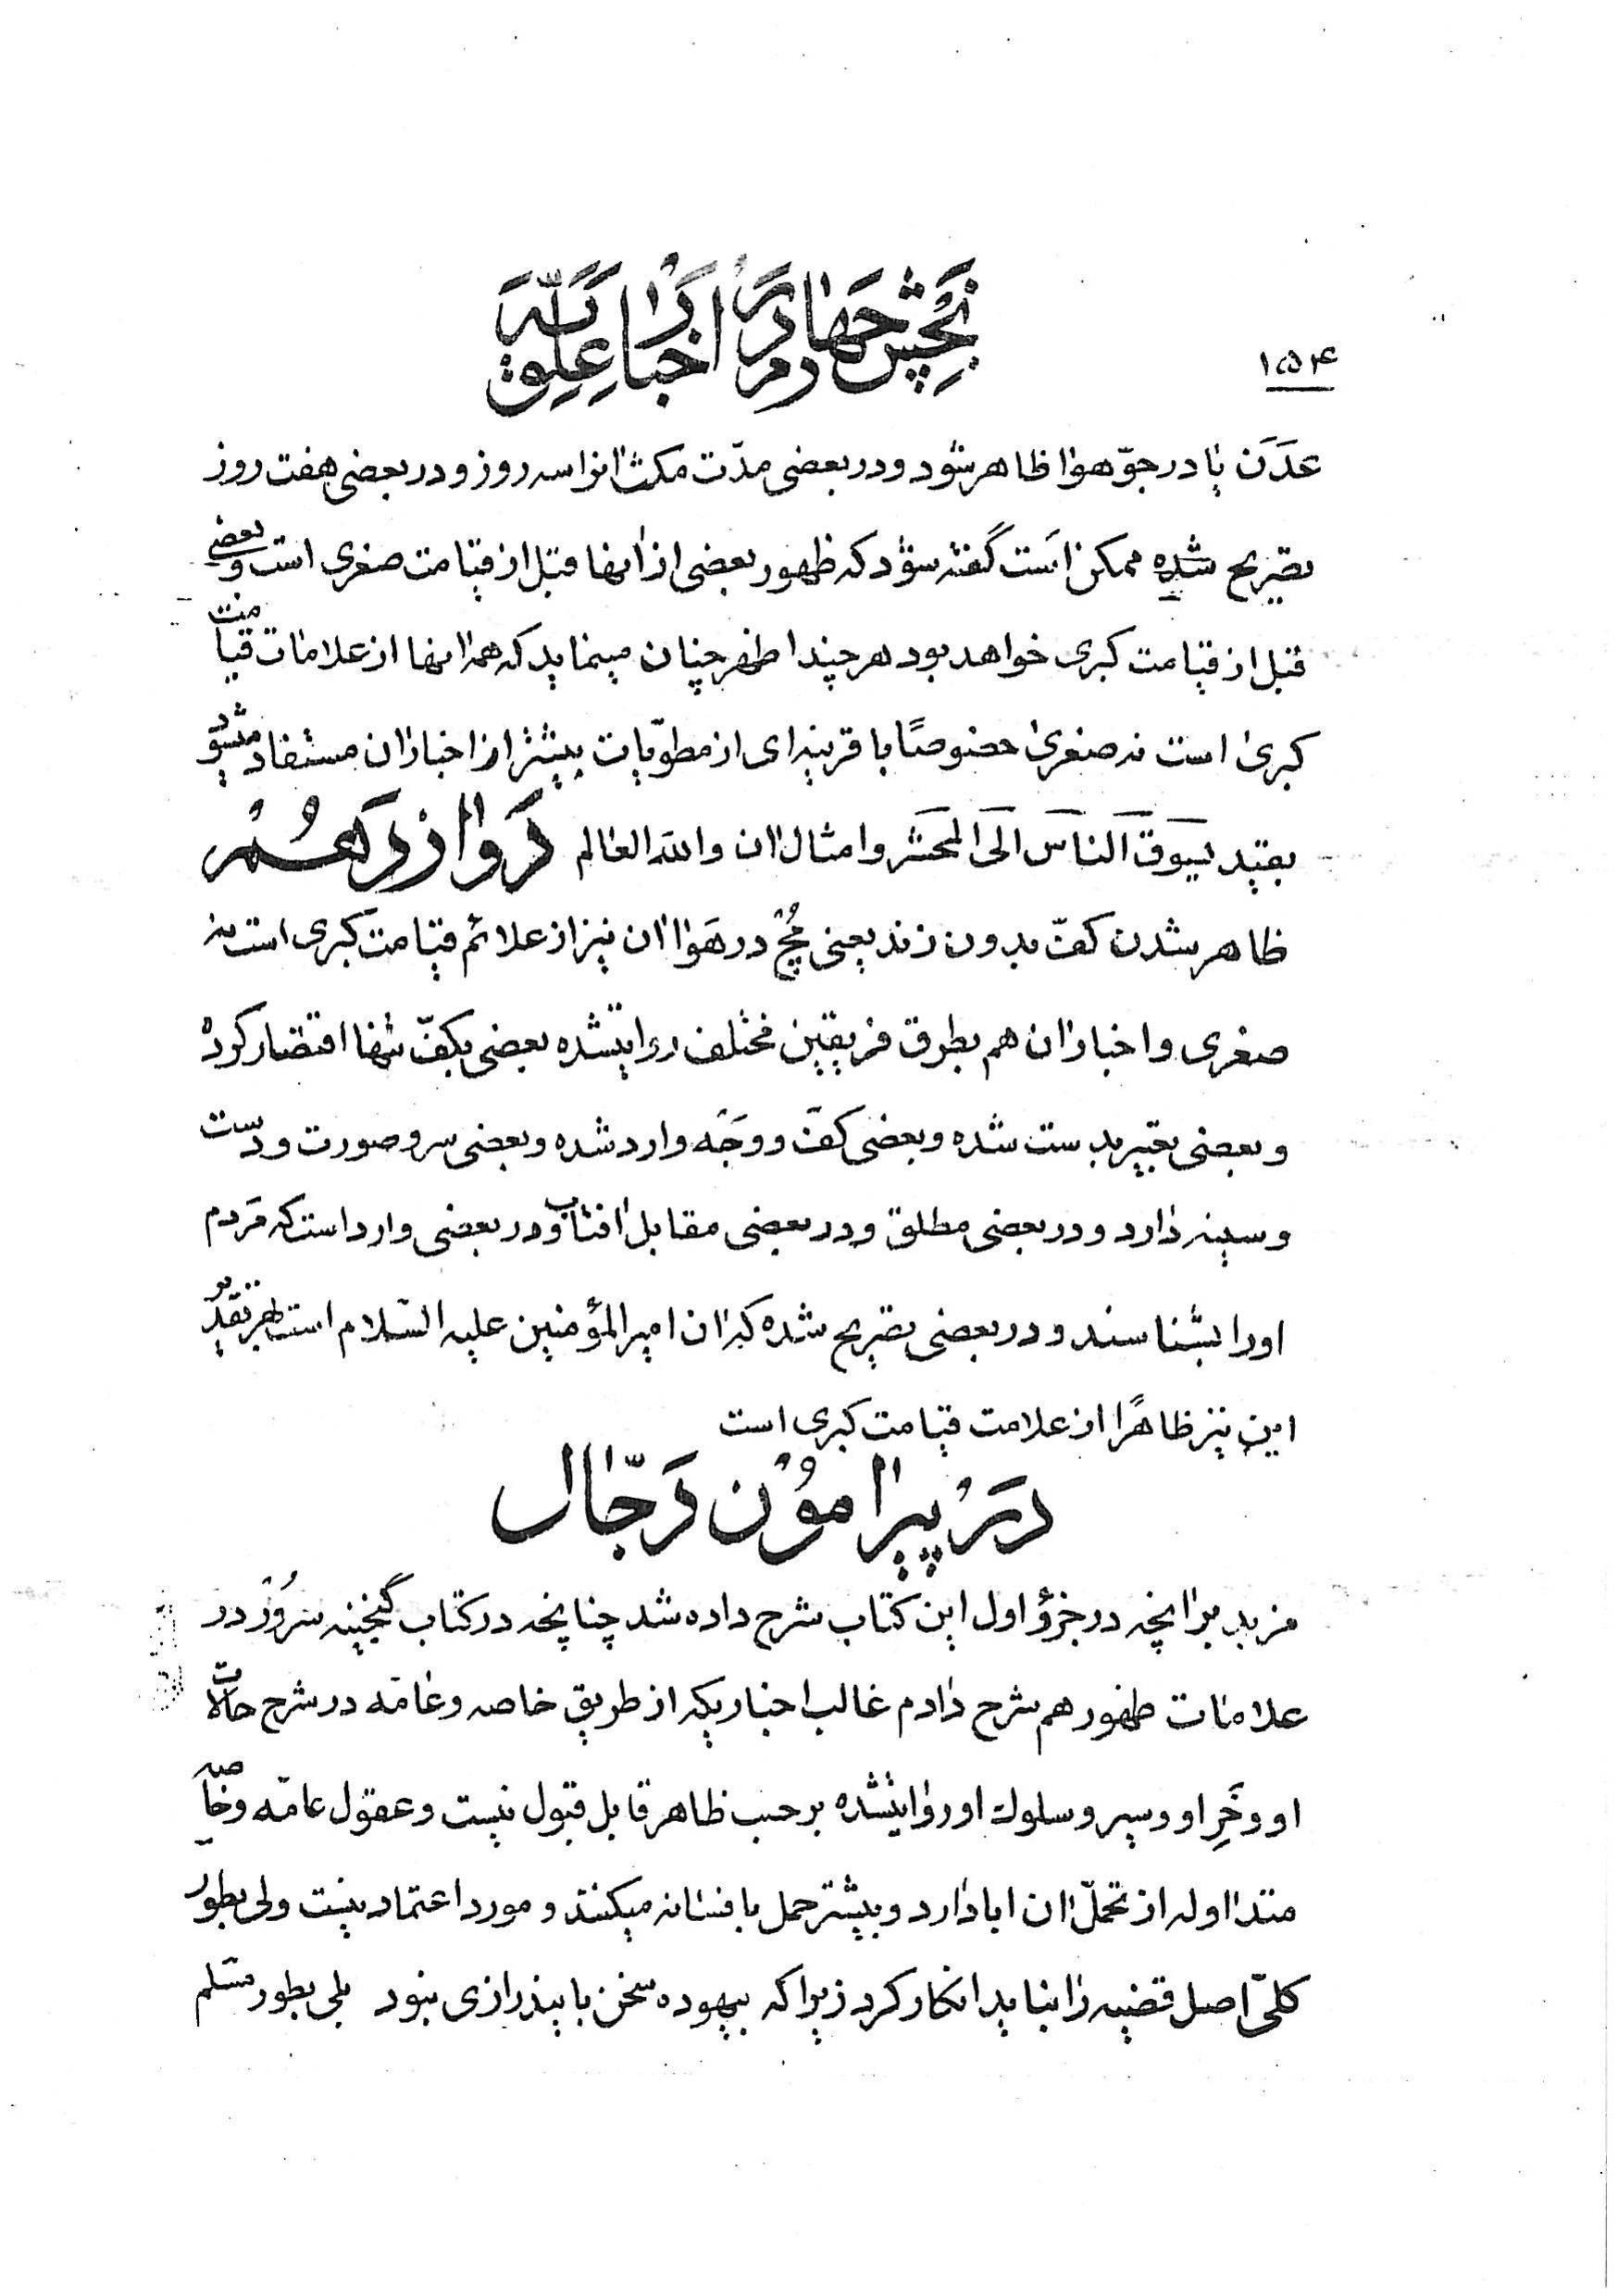 بخش چهارم در اخبار علویّه
۱۵۴
عدن یا در جوّ هوا ظاهر شود و در بعضی مدّت مکث انرا سه روز و در بعضی هفت روز
تصریح شده ممکن است گفته شود که ظهور بعضی از انها قبل از قیامت صغری است و بعضی
قبل از قیامت کبری خواهد بود هر چند اظهر چنان مینماید که همه انها از علامات قیامت
کبری است نه صغری خصوصًا با قرینه ای از مطویّات بیشتر از اخبار ان مستفاد میشود
بقید یسوق الناس الی المحشر و امثال ان والله العالم دوازدهم
ظاهر شدن کفّ بدون زند یعنی مُچ در هوا ان نیز از علائم قیامت کبری است نه
صغری و اخبار ان هم بطرق فریقین مختلف روایتشده بعضی بکفّ تنها اقتصار کرده
و بعضی تعبیر بدست شده و بعضی کف و وجه وارد شده و بعضی سر و صورت و دست
و سینه دارد و در بعضی مطلق و در بعضی مقابل افتاب و در بعضی وارد است که مردم
او را بشناسند و در بعضی تصریح شده که ان امیر المؤمنین علیه السّلام است بهر تقدیر
این نیز ظاهرًا از علامت قیامت کبری است
در پیرامون دجّال
مزید بر انچه در جزؤ اول این کتاب شرح داده شد چنانچه در کتاب گنجینه سرور در
علامات ظهور هم شرح دادم غالب اخباریکه از طریق خاصه و عامّه در شرح حالات
او و خر او و سیر و سلوک او روایتشده بر حسب ظاهر قابل قبول نیست و عقول عامّه و خاصه
متداوله از تحمّل ان ابا دارد و بیشتر حمل بافسانه میکنند و مورد اعتماد نیست ولی بطور
کلّی اصل قضیه را نباید انکار کرد زیرا که بیهوده سخن باینذرازی نبود بلی بطور مسّلم